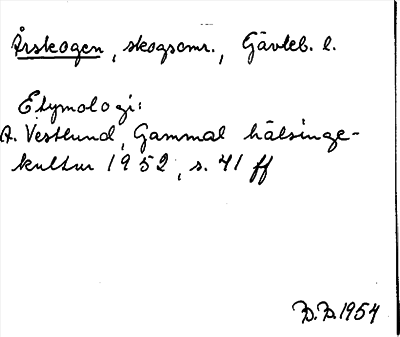 Årskogen, skogsomr., Gävleb. l.
Etymologi:
A. Vestlund, Gammal hälsinge-
kultur 1952, s. 41 ff
B.B. 1954